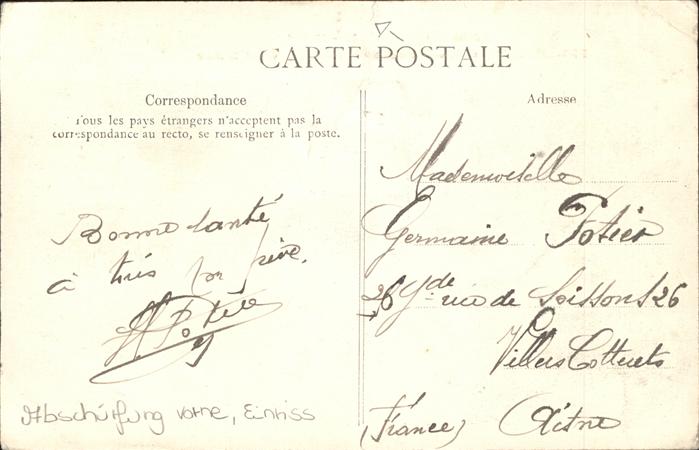 CARTE POSTALE
Correspondance
Tous les pays étrangers n'acceptent pas la
correspondance au recto, se renseigner à la poste.
Bonne santé
à
Potier
Abschürfung vorne, Einriss
Adresse
Mademoiselle
Germaine Potier
26 Gde rue de Soissons 26
Villers Cotterets
(France) Aisne